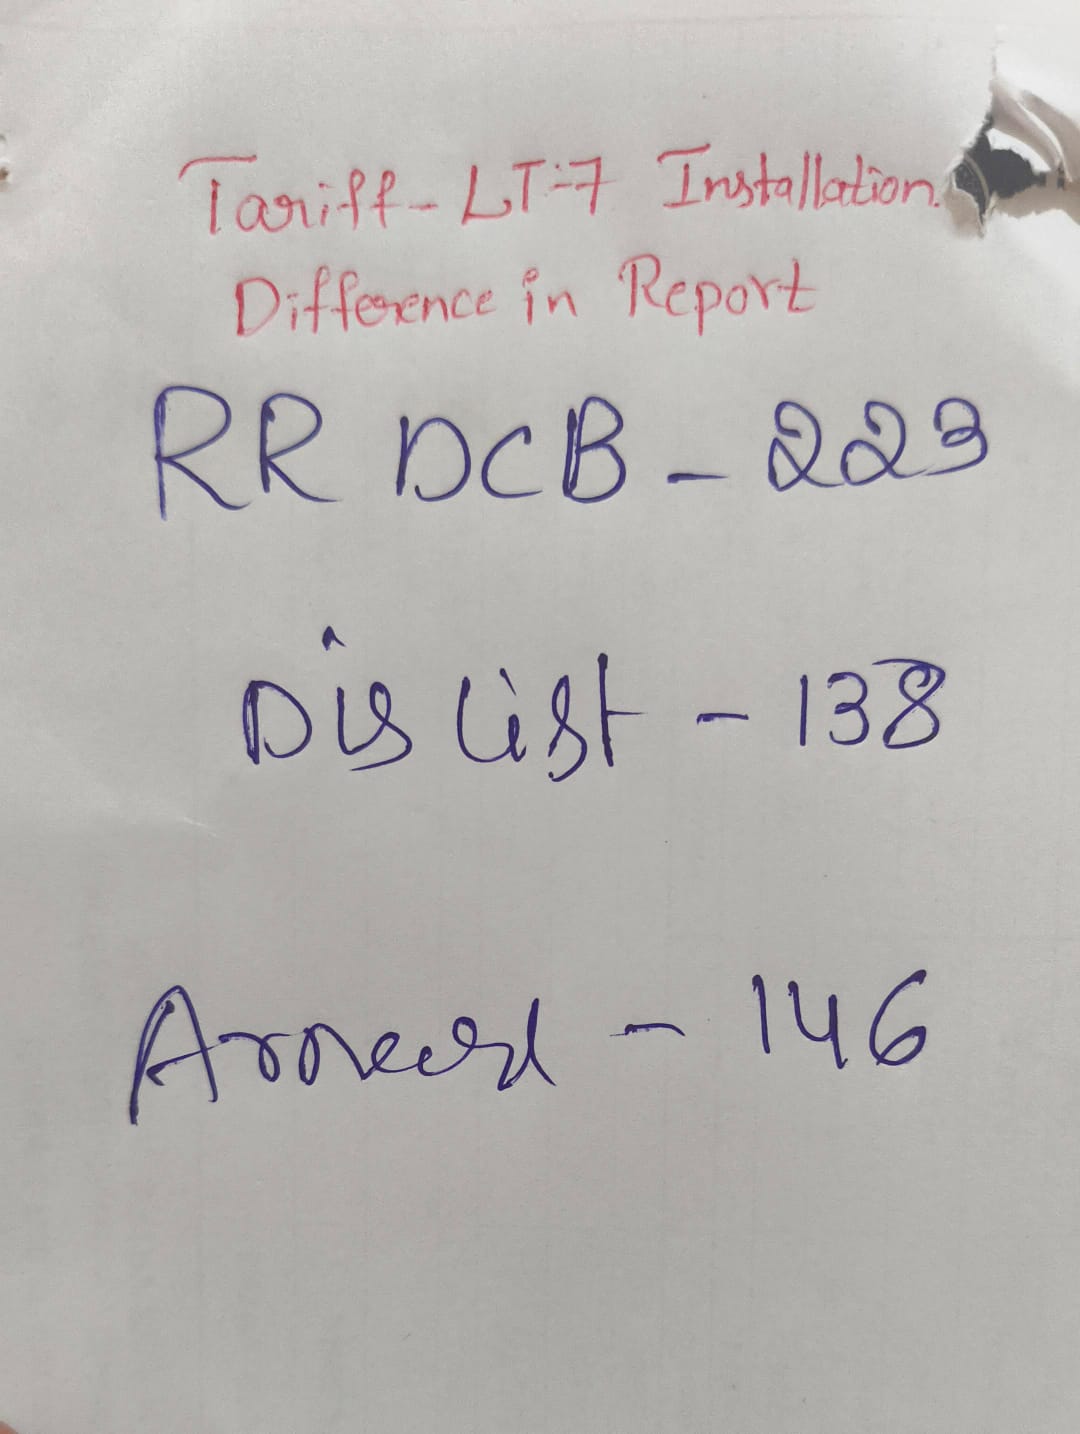 Tariff-LT-7 Installation.
Difference in Report
RR DCB - 223
Dis list - 138
- 146